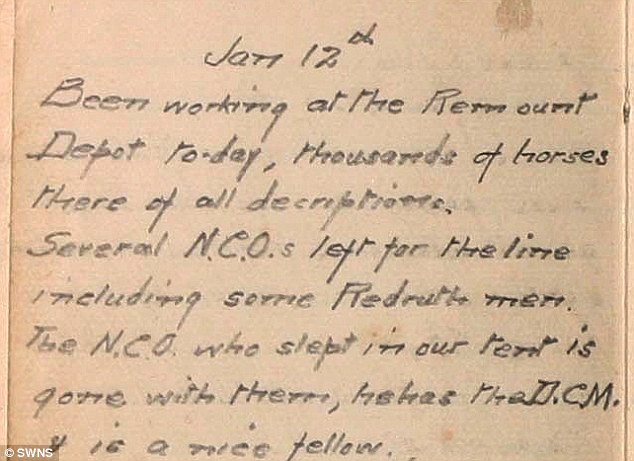 Jan 12d
Been working at the Remount
Depot to-day, thousands of horses
there of all decriptions.
Several N.C.O.s left for the line
including some Redruth men.
The N.C.O. who slept in our tent is
gone with them, he has the D.C.M.
& is a nice fellow.
© SWNS